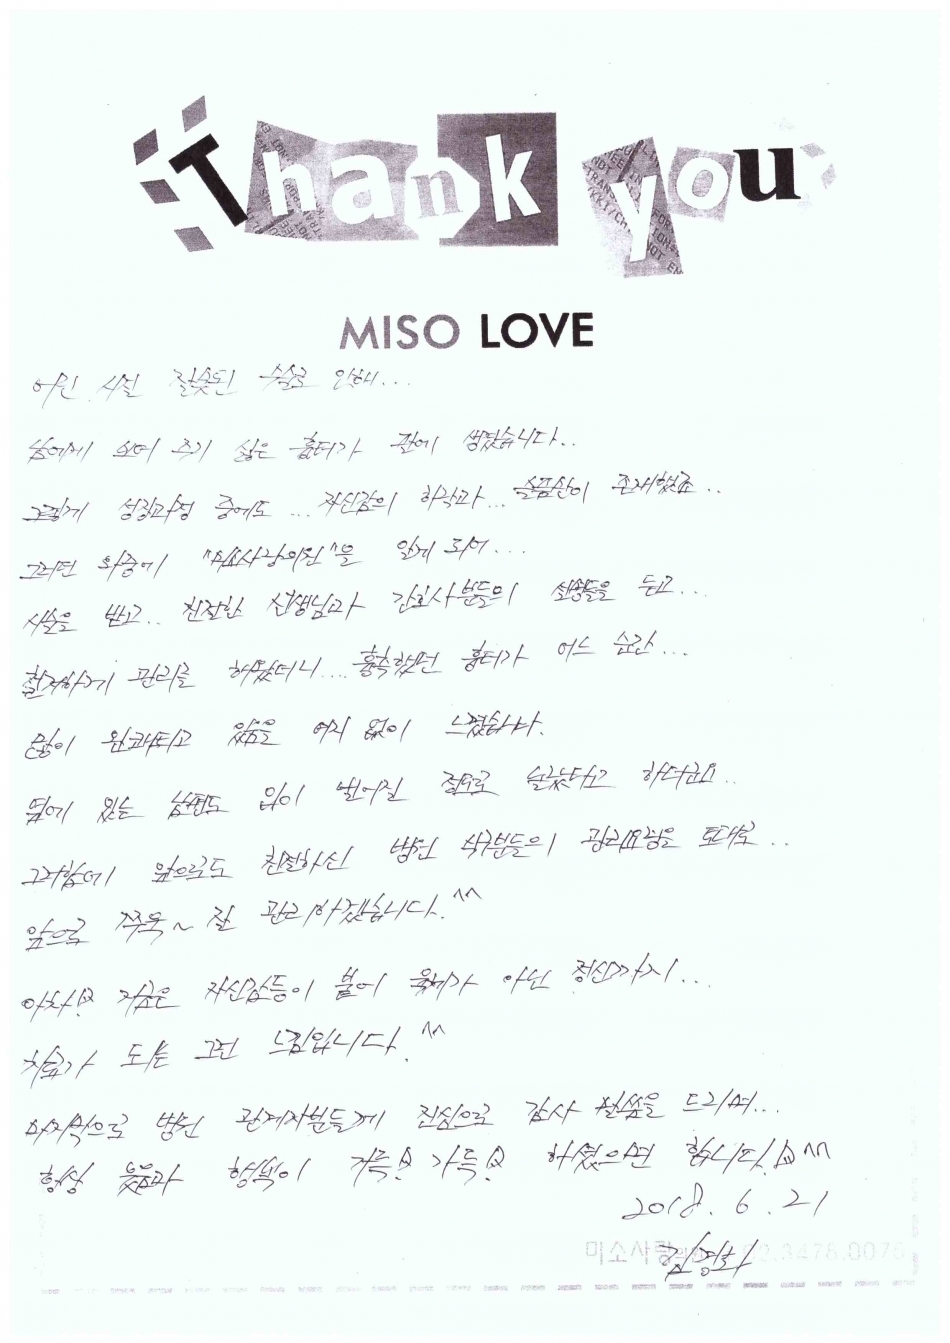 Thank you
MISO LOVE
어린 시절 잘못된 수술로 인해...
남에게 보여 주기 싫은 흉터가 팔에 생겼습니다..
그렇게 성장과정 중에도... 자신감의 하락과... 슬픔만이 존재했죠..
그러던 와중에 "미소사랑의원"을 알게 되어...
시술을 받고.. 친절한 선생님과 간호사분들의 설명들을 듣고...
철저하게 관리를 해왔더니.... 흉측했던 흉터가 어느 순간...
많이 완쾌되고 있음을 여지 없이 느꼈습니다.
옆에 있는 남편도 입이 벌어질 정도로 놀랐다고 하더군요..
그러함에 앞으로도 친절하신 병원 식구분들의 관리요령을 토대로..
앞으로 쭈욱~ 잘 관리하겠습니다.^^
아차! 지금은 자신감등이 붙어 육체가 아닌 정신까지...
치료가 되는 그런 느낌입니다.^^
마지막으로 병원 관계자분들께 진심으로 감사 말씀을 드리며...
항상 웃음과 행복이 가득! 가득! 하셨으면 합니다!^^
2018. 6. 21
미소사랑의원 02.3478.0075